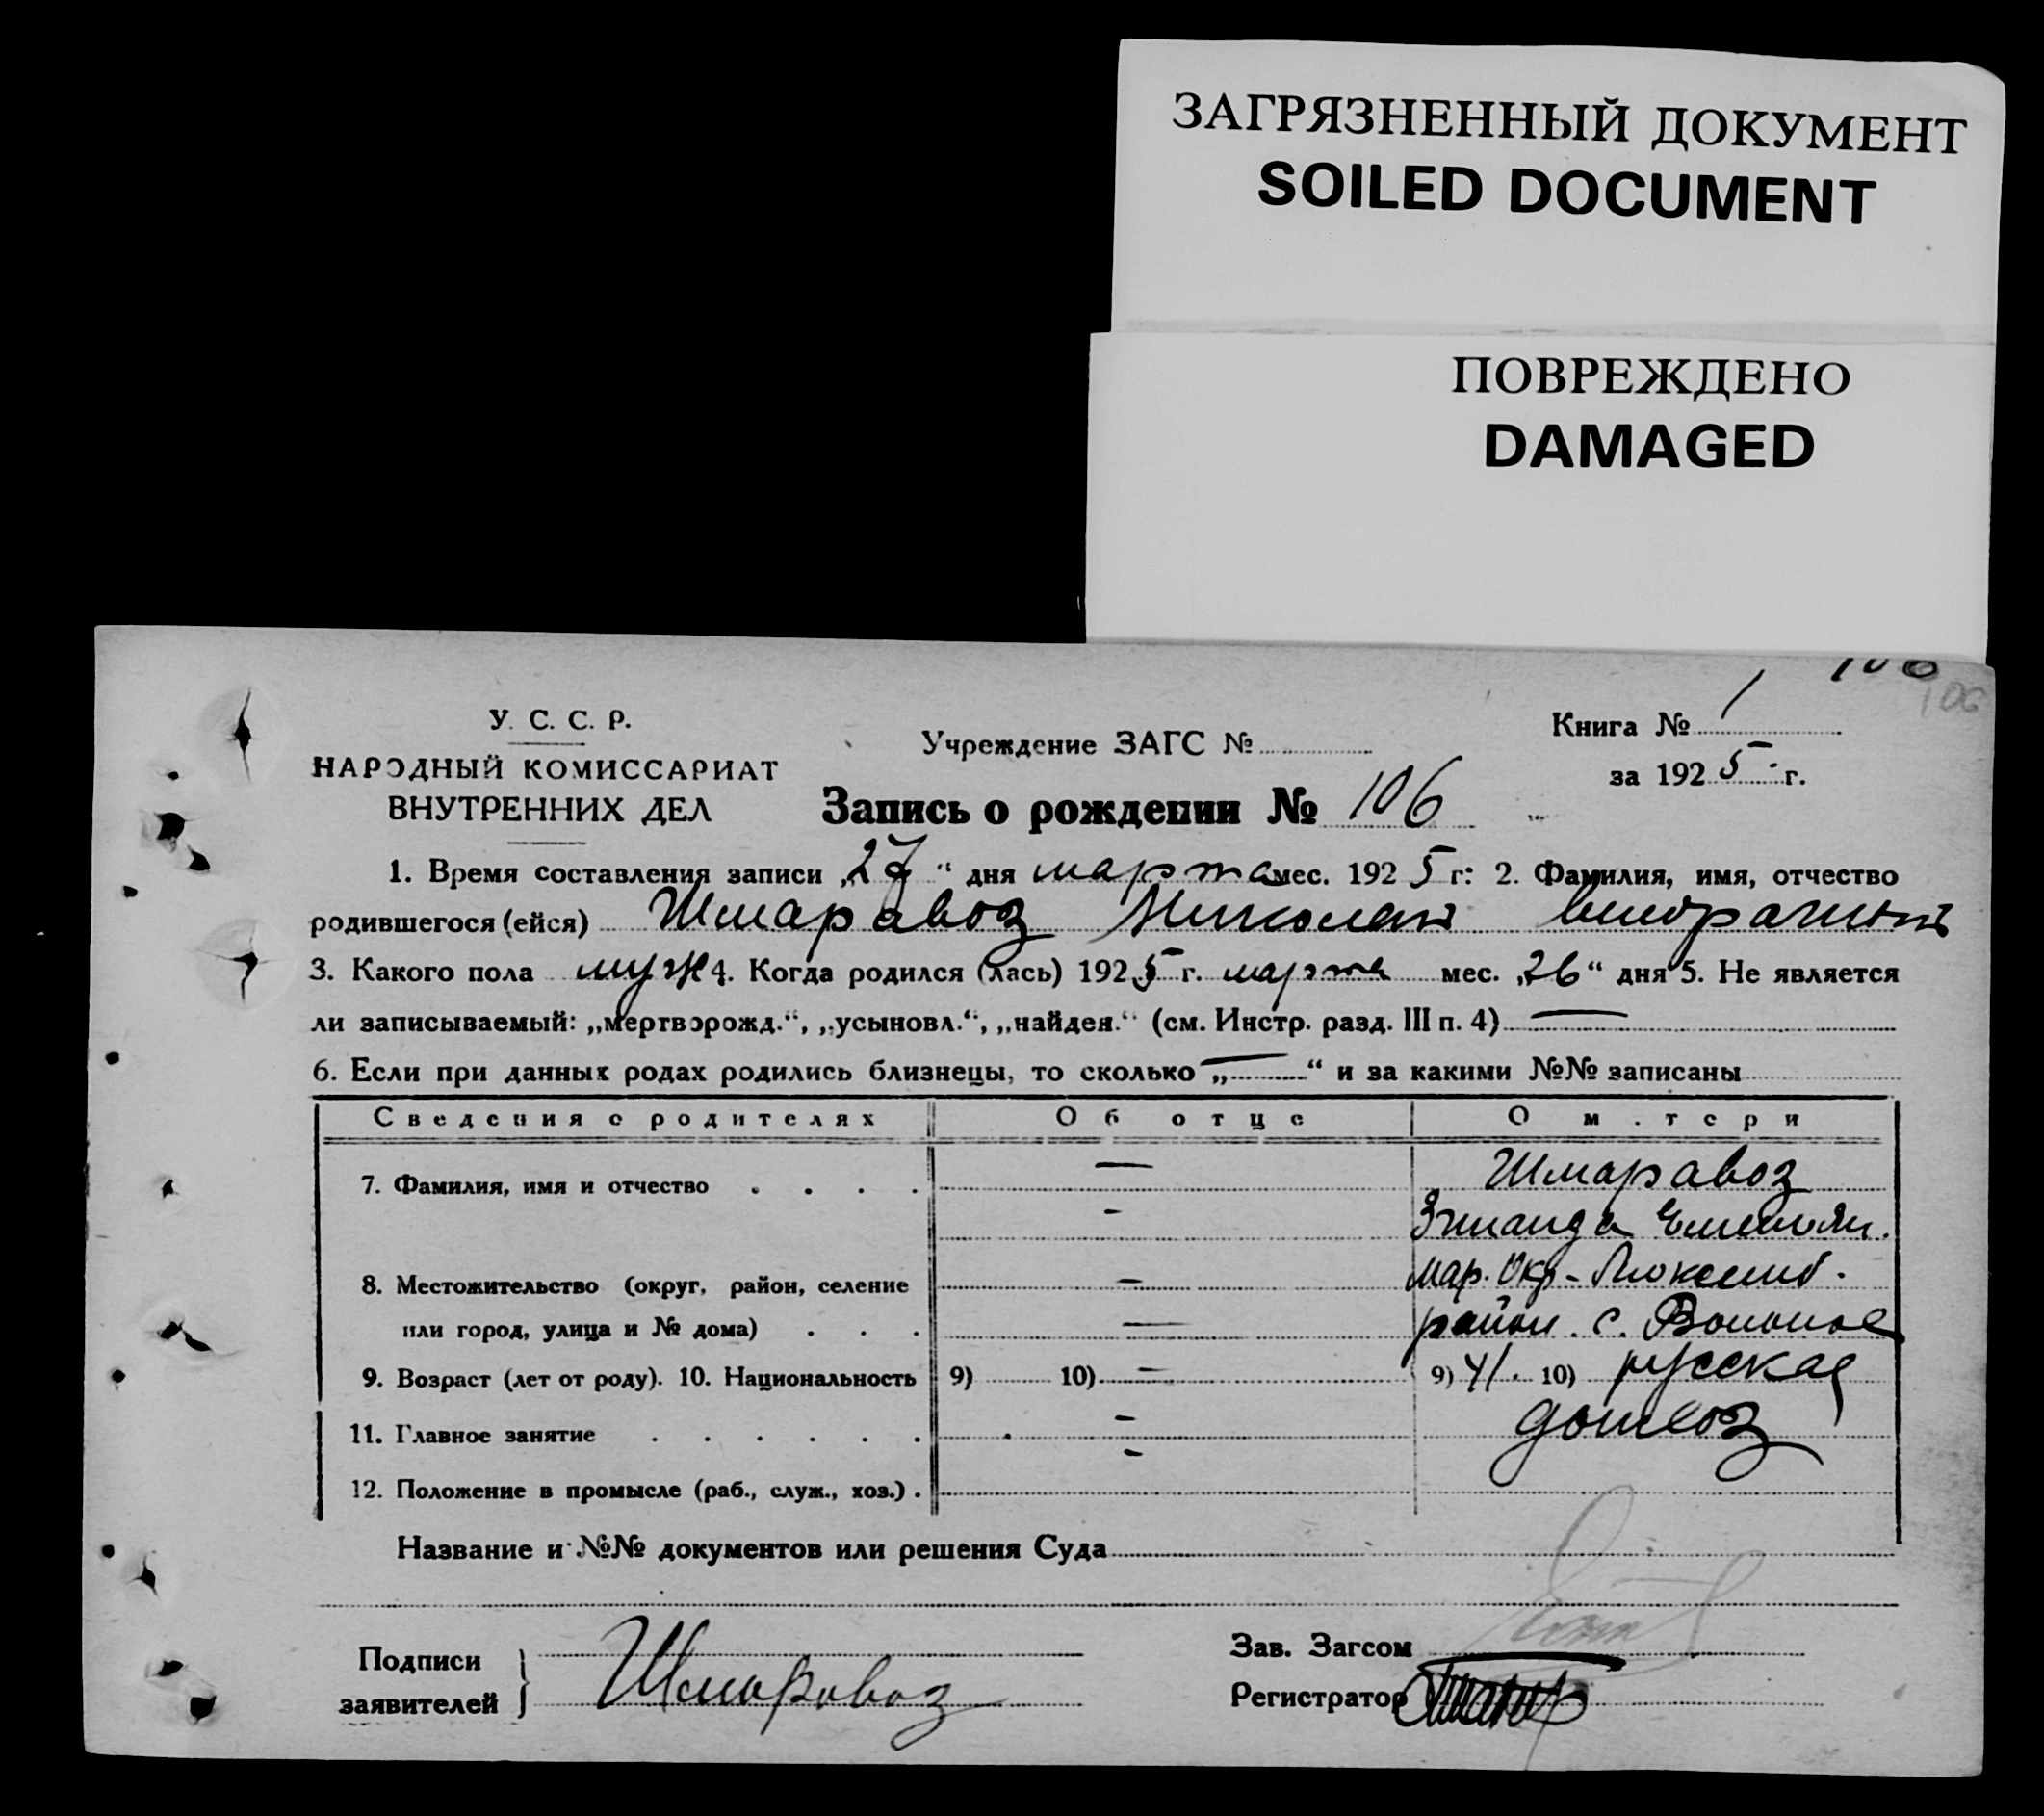 ЗАГРЯЗНЕННЫЙ ДОКУМЕНТ
SOILED DOCUMENT
ПОВРЕЖДЕНО
DAMAGED
106
106
У. С. С. Р.
НАРОДНЫЙ КОМИССАРИАТ
ВНУТРЕННИХ ДЕЛ
Учреждение ЗАГС №
Книга № 1
за 1925 г.
Запись о рождении № 106
1. Время составления записи „27“ дня марта мес. 1925 г: 2. Фамилия, имя, отчество
родившегося (ейся) Шмаравоз Николай
3. Какого пола муж 4. Когда родился (лась) 1925 г. марта мес. „26“ дня 5. Не является
ли записываемый: „мертворожд.“, „усыновл.“, „найден.“ (см. Инстр. разд. III п. 4) —
6. Если при данных родах родились близнецы, то сколько „—“ и за какими №№ записаны
Сведения о родителях Об отце О м.тери
7. Фамилия, имя и отчество . . . . — Шмаравоз
- Емельян.
8. Местожительство (округ, район, селение — Мар. Окр-
или город, улица и № дома) . . . — район. с.
9. Возраст (лет от роду). 10. Национальность 9) 10) — 9) 41. 10) русская
11. Главное занятие . . . . . . - домхоз
12. Положение в промысле (раб., служ., хоз.) . -
Название и №№ документов или решения Суда
Подписи
заявителей } Шмаровоз
Зав. Загсом
Регистратор